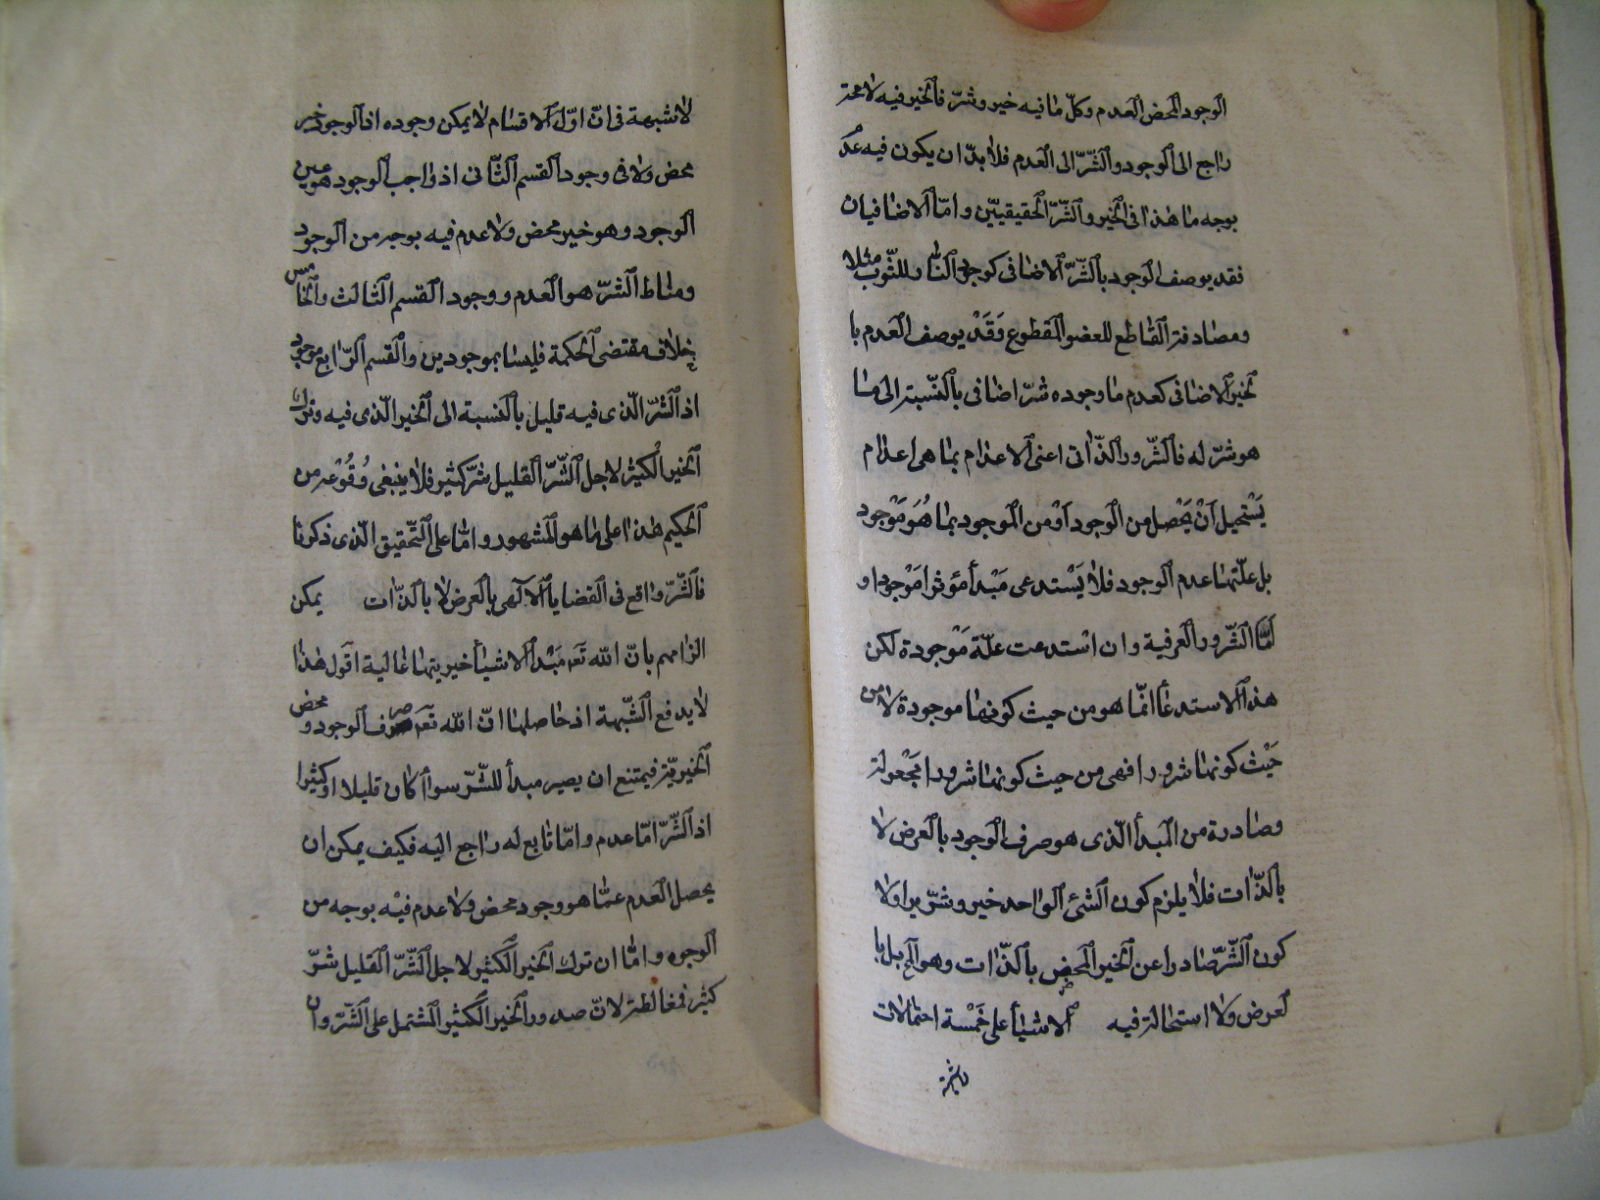 الوجود المحض العدم وكل ما فيه خير وشر فالخير فيه لا محة
راجع الى الوجود والشّرّ الى العدم فلا بدّ ان يكون فيه عدم
بوجه ما هذا فى الخير والشّرّ الحقيقيّين وامّا الاضافيان
فقد يوصف الوجود بالشّرّ الاضافى كوجود النّار للثّوب مثلا
ومصادفة القاطع للعضو المقطوع وَقَدْ يوصف العدم با
لخير الاضافى كعدم ما وجوده شرّ اضافى بالنّسبة الى ما
هو شرّ له فالشّرور الذّاتى اعنى الاعدام بما هى اعدام
يَسْتحيل اَنْ يَحْصل من الوجود اَوْ من الموجود بما هُوَ مَوْجود
بل علّتها عدم الوجود فلا يَسْتدعى مَبْدأ مؤثرا مَوْجودا و
امّا الشّرور العرفية وان اسْتدعت علّة مَوْجودة لكن
هذا الاستدعأ انّما هو من حيث كونها موجودة لا من
حَيْث كونها شرورا فهى من حيث كونها شرورا مَجْعولة
وصادرة من المبدأ الّذى هو صرف الوجود بالعرض لا
بالذّات فلا يلزم كون الشئ الواحد خير وشرّيرا ولا
كون الشّرّ صادرا عن الخير المحض بالذّات وهو المح بل با
لعرض ولا استحالة فيه الاشيأ على خَمْسة احتمالات
لا شبهة
لا شبهة فى انّ اوّل الاقسام لا يمكن وجوده اذ الوجود خير
محض ولا فى وجود القسم الثّانى اذ واجب الوجود هو عين
الوجود وهو خير محض ولا عدم فيه بوجه من الوجود
ومناط الشّرّ هو العدم ووجود القسم الثّالث والخامس
خلاف مقتضى الحكمة فليسا بموجودين والقسم الرّابع موجود
اذ الشّرّ الّذى فيه قليل بالنسبة الى الخير الّذى فيه وترك
الخير الكثير لاجل الشّرّ القليل شرّ كثير فلا ينبغى وُقُوْعه من
الحكيم هذا على ما هو المشهور وامّا على التّحقيق الّذى ذكرنا
فالشّرّ واقع فى القضايا الالهى بالعرض لا بالذّات يمكن
الزامهم بانّ الله تَعَ مَبْدأ الاشيأ خيريتها غالبة اقول هذا
لا يدفع الشّبهة اذ حاصلها انّ الله تَعَ صرف الوجود ومحض
الخيريّة فيمتنع ان يصير مبدأ للشّرّ سوأ كان قليلا او كثيرا
اذ الشّرّ امّا عدم وامّا تابع له راجع اليه فكيف يمكن ان
يحصل العدم عمّا هو وجود محض ولا عدم فيْه بوجه من
الوجوه وامّا ان ترك الخير الكثير لاجل الشّرّ القليل شرّ
كثير فمغالطة لانّ صدور الخير الكثير المشتمل على الشّرّ وان